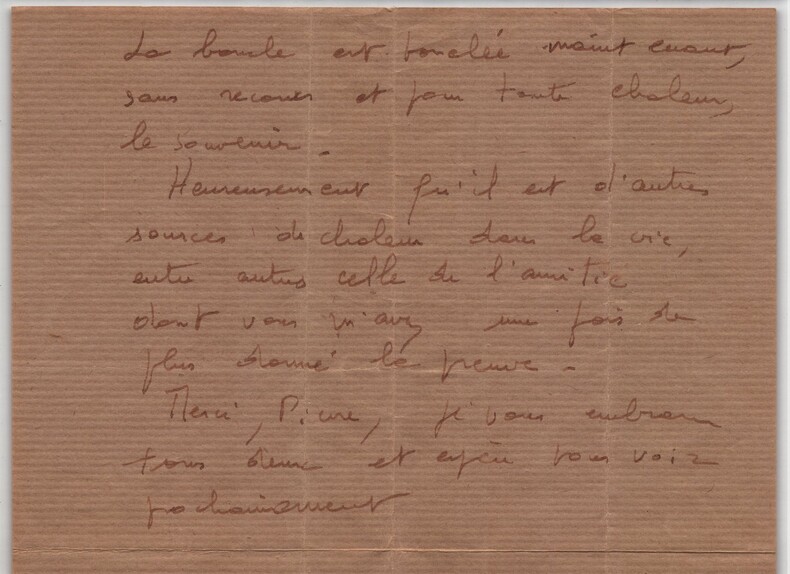 La boucle est bouclée maintenant,
sans recours et pour toute chaleur,
le souvenir.
Heureusement qu'il est d'autres
sources de chaleur dans la vie,
entre autres celle de l'amitié
dont vous m'avez une fois de
plus donné la preuve.
Merci, Pierre, je vous embrasse
tous deux et espère vous voir
prochainement